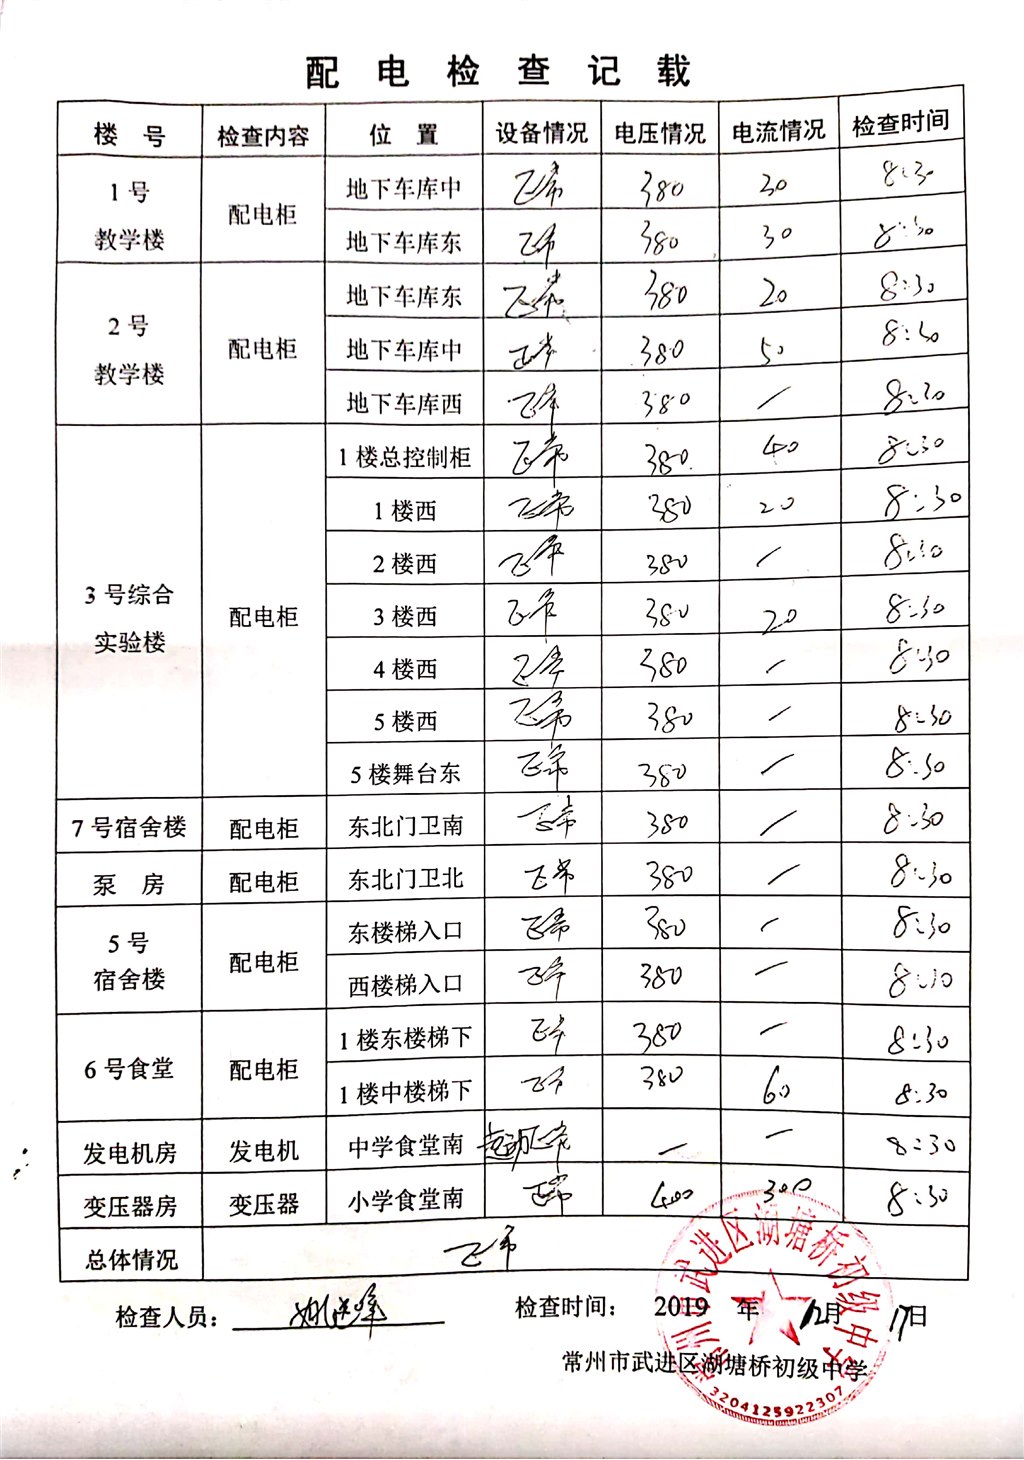 配电检查记载
楼 号 检查内容 位 置 设备情况 电压情况 电流情况 检查时间
1号教学楼 配电柜 地下车库中 正常 380 30 8:30
地下车库东 正常 380 30 8:30
2号教学楼 配电柜 地下车库东 正常 380 20 8:30
地下车库中 正常 380 50 8:30
地下车库西 正常 380 / 8:30
3号综合实验楼 配电柜 1楼总控制柜 正常 380 40 8:30
1楼西 正常 380 20 8:30
2楼西 正常 380 / 8:30
3楼西 正常 380 20 8:30
4楼西 正常 380 / 8:30
5楼西 正常 380 / 8:30
5楼舞台东 正常 380 / 8:30
7号宿舍楼 配电柜 东北门卫南 正常 380 / 8:30
泵 房 配电柜 东北门卫北 正常 380 / 8:30
5号宿舍楼 配电柜 东楼梯入口 正常 380 / 8:30
西楼梯入口 正常 380 / 8:30
6号食堂 配电柜 1楼东楼梯下 正常 380 / 8:30
1楼中楼梯下 正常 380 60 8:30
发电机房 发电机 中学食堂南 启动正常 / / 8:30
变压器房 变压器 小学食堂南 正常 400 300 8:30
总体情况 正常
检查人员： 检查时间： 2019 年 12月 17日
常州市武进区湖塘桥初级中学
常州市武进区湖塘桥初级中学
3204125922307